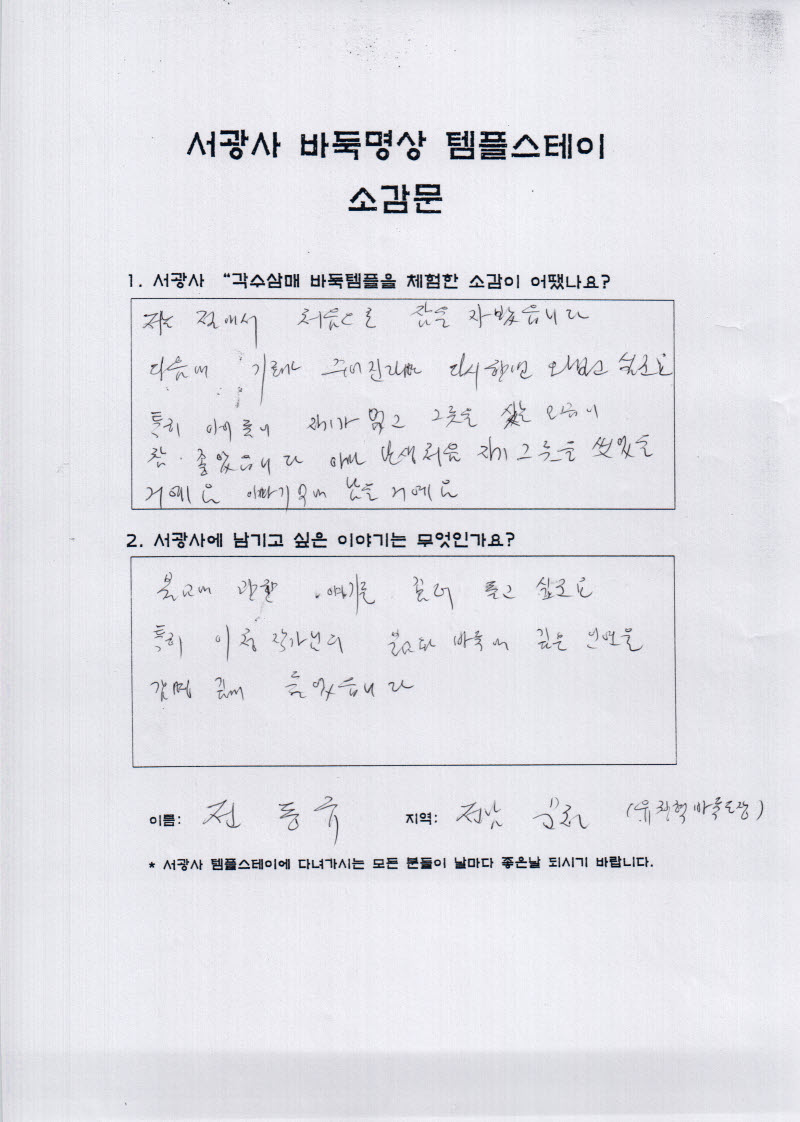 서광사 바둑명상 템플스테이
소감문
1. 서광사 “각수삼매 바둑템플을 체험한 소감이 어땠나요?
저는 절에서 처음으로 잠을 자봤습니다
다음에 기회가 주어진다면 다시한번 와보고 싶고요
특히 아이들이 자기가 먹고 그릇을 씻는 모습이
참 좋았습니다 아마 난생처음 자기 그릇을 씻었을
거예요 이야기 남을 거예요
2. 서광사에 남기고 싶은 이야기는 무엇인가요?
불교에 관한 얘기를 깊이 듣고 싶고요
특히 이 작가님의 불교와 바둑에 깊은 인연을
감명 깊게 들었습니다
이름: 전 동 규 지역: 전남 순천 (유창혁바둑도장)
* 서광사 템플스테이에 다녀가시는 모든 분들이 날마다 좋은날 되시기 바랍니다.